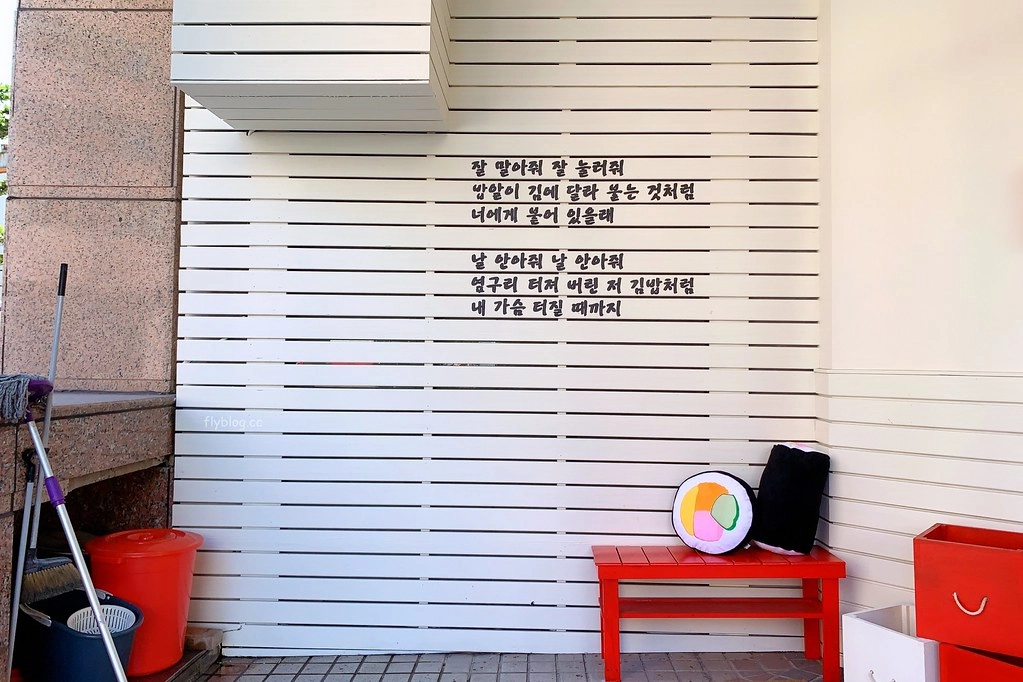 잘 말아줘 잘 눌러줘
밥알이 김에 달라 붙는 것처럼
너에게 붙어 있을래
날 안아줘 날 안아줘
옆구리 터져 버린 저 김밥처럼
내 가슴 터질 때까지
flyblog.cc